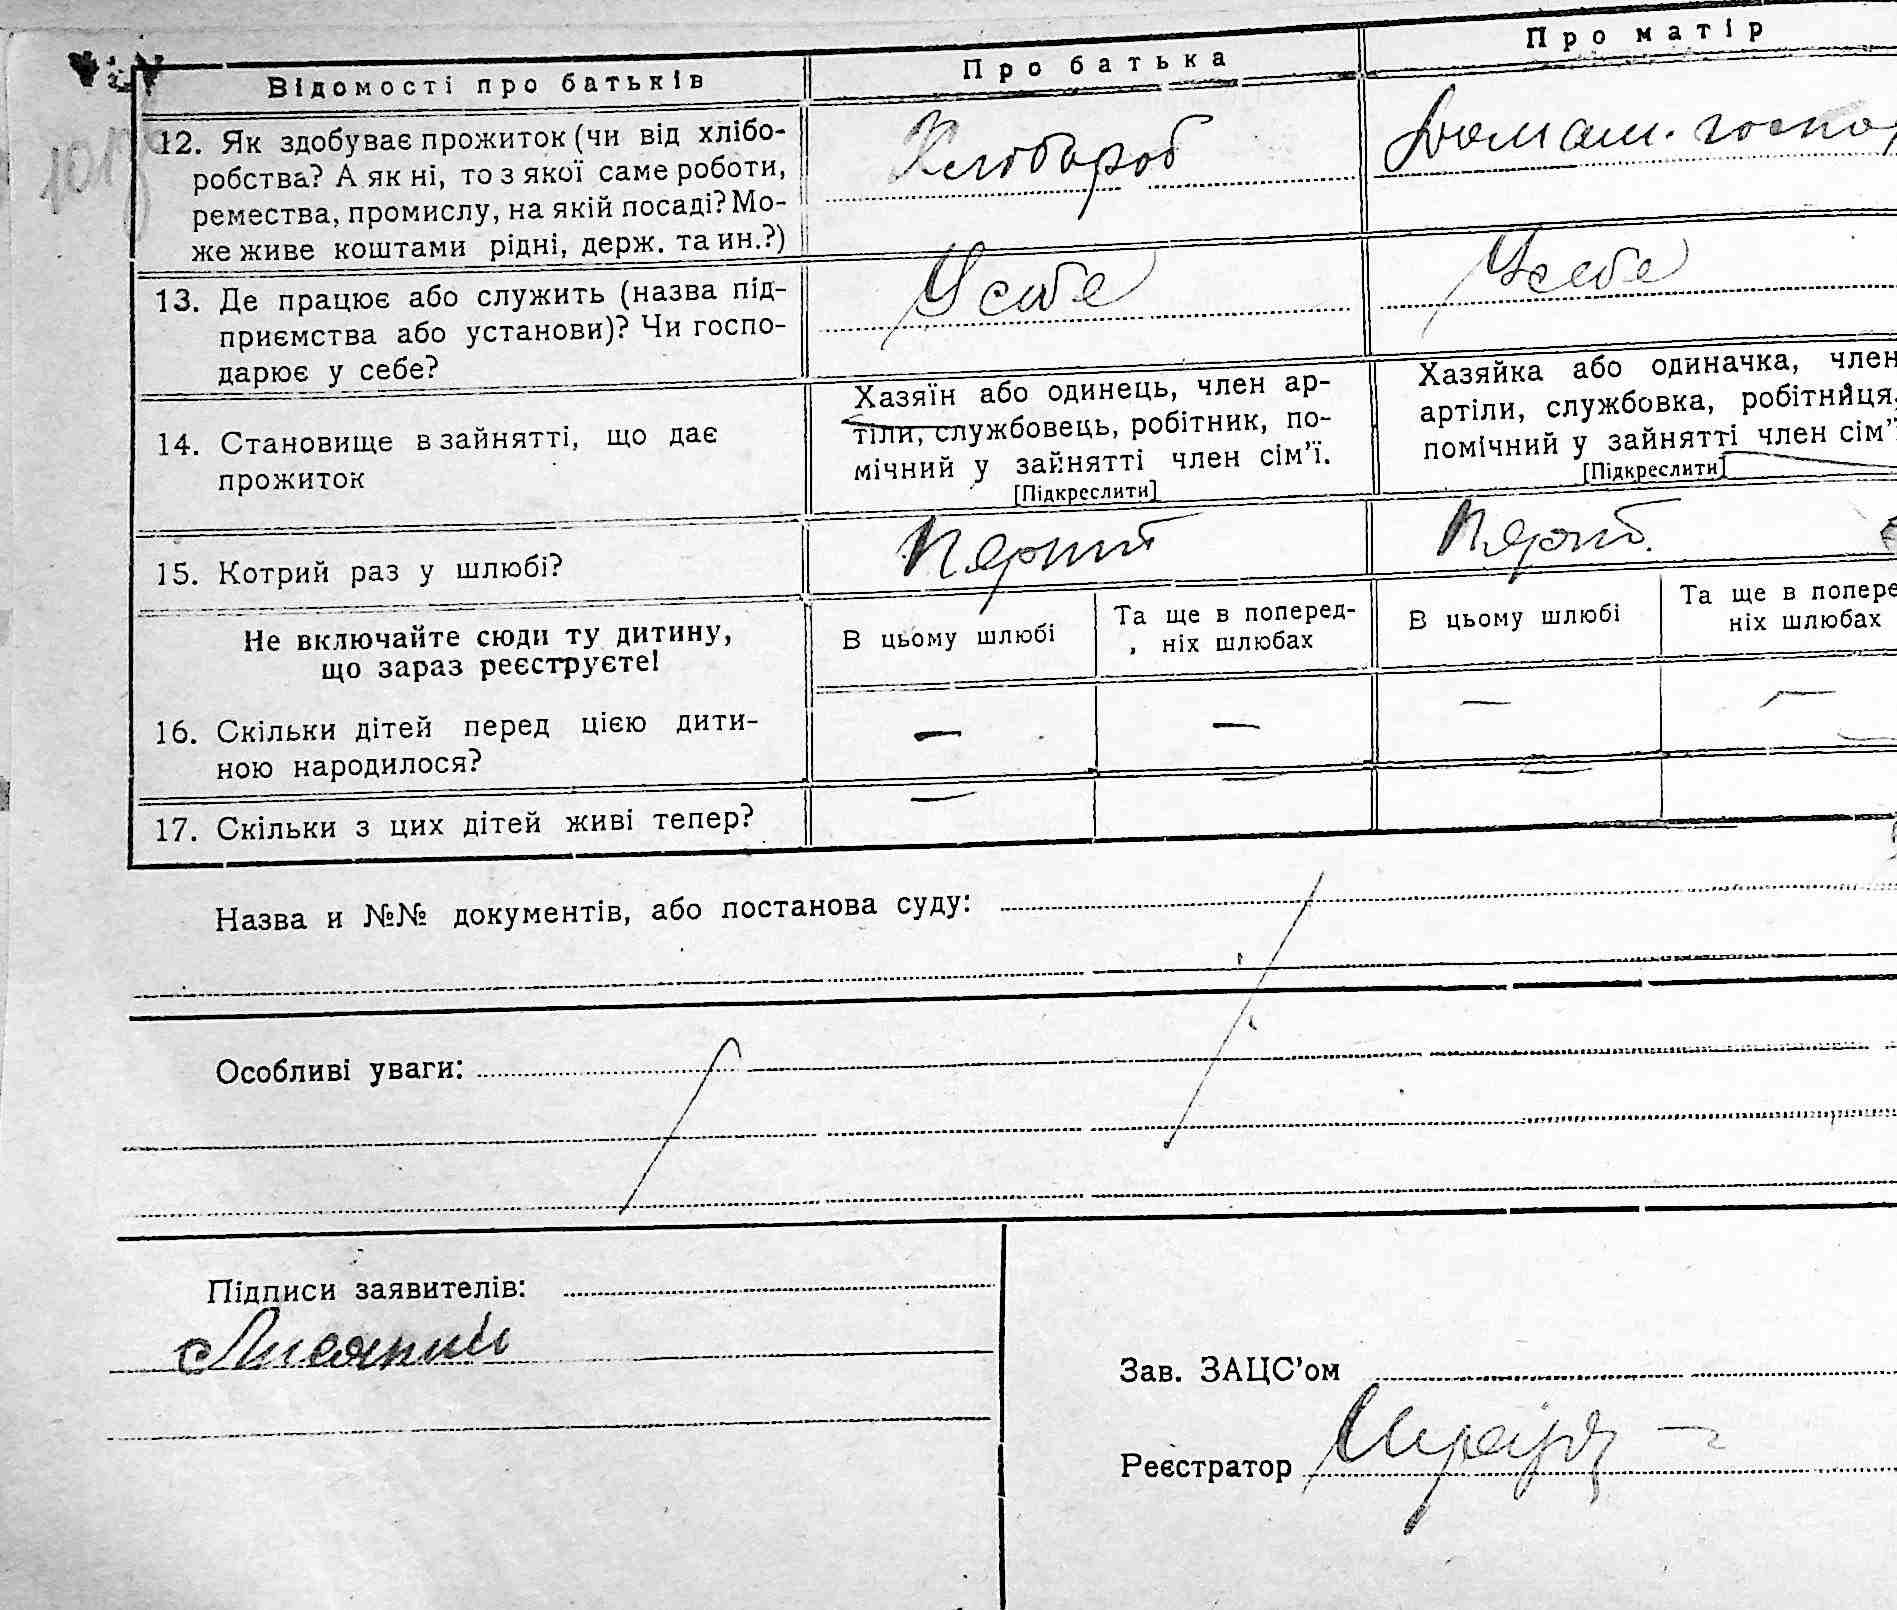 Відомості про батьків Про батька Про матір
12. Як здобуває прожиток (чи від хлібо-
робства? А як ні, то з якої саме роботи,
ремества, промислу, на якій посаді? Мо-
же живе коштами рідні, держ. та ин.?)
Хлібороб Домаш. госпо
13. Де працює або служить (назва під-
приємства або установи)? Чи госпо-
дарює у себе?
У себе У себе
14. Становище в зайнятті, що дає
прожиток
Хазяїн або одинець, член ар-
тіли, службовець, робітник, по-
мічний у зайнятті член сім'ї.
[Підкреслити]
Хазяйка або одиначка, член
артіли, службовка, робітниця,
помічний у зайнятті член сім'ї
[Підкреслити]
15. Котрий раз у шлюбі?
Перший
Не включайте сюди ту дитину,
що зараз реєструєте!
В цьому шлюбі
Та ще в поперед-
ніх шлюбах
В цьому шлюбі
Та ще в попере
ніх шлюбах
16. Скільки дітей перед цією дити-
ною народилося?
— — — —
17. Скільки з цих дітей живі тепер?
— — —
Назва и №№ документів, або постанова суду:
Особливі уваги:
Підписи заявителів:
Зав. ЗАЦС'ом
Реєстратор